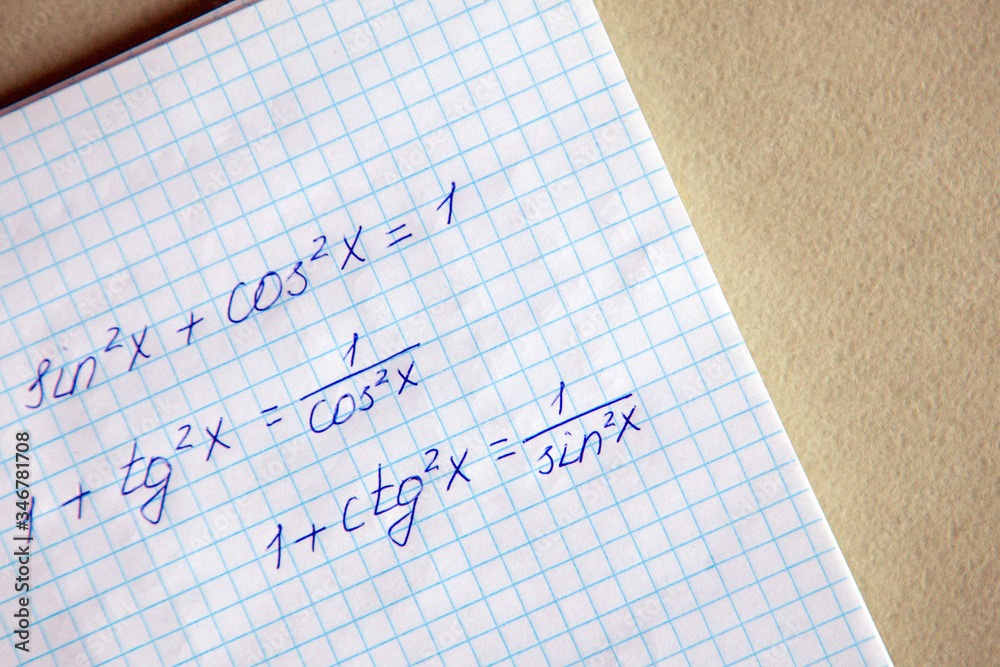 sin²x + cos²x = 1
1 + tg²x = 1/cos²x
1 + ctg²x = 1/sin²x
Adobe Stock | #346781708